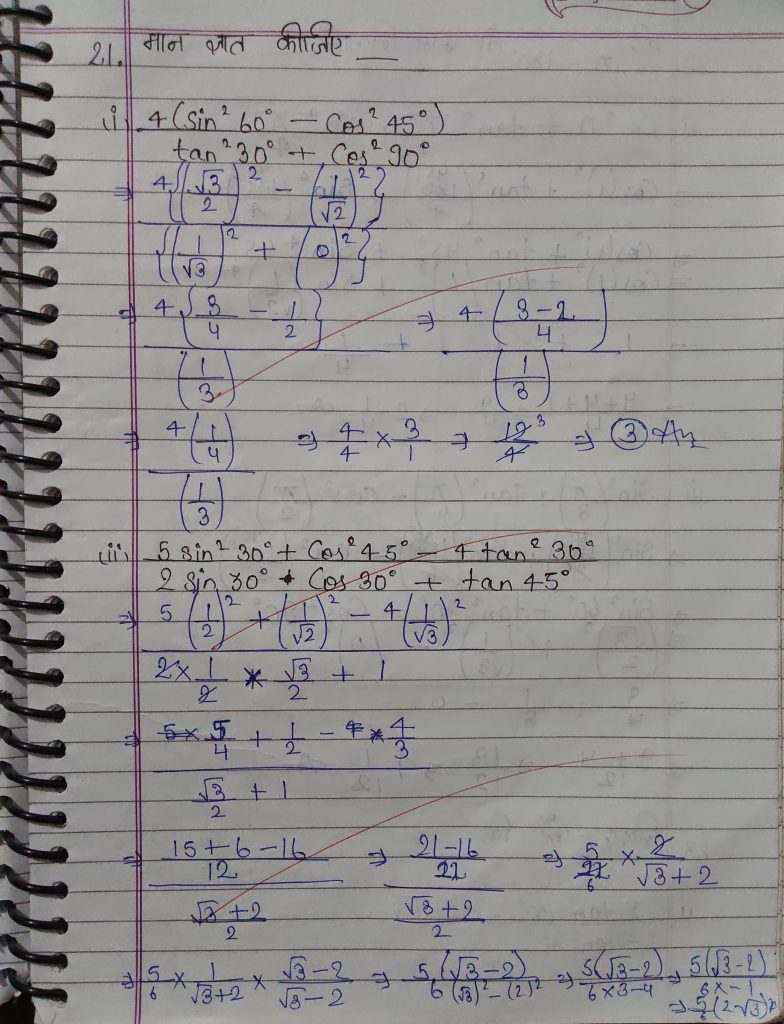 21. मान ज्ञात कीजिए —
(i) 4(sin²60° – cos²45°) / tan²30° + cos²90°
⇒ 4{(√3/2)² – (1/√2)²} / {(1/√3)² + (0)²}
⇒ 4{3/4 – 1/2} / (1/3) ⇒ 4(3–2/4) / (1/3)
⇒ 4(1/4) / (1/3) ⇒ 4/4 × 3/1 ⇒ 12/4 3 ⇒ ③ Ans
(ii) 5 sin²30° + cos²45° – 4 tan²30° / 2 sin 30° • cos 30° + tan 45°
⇒ 5(1/2)² + (1/√2)² – 4(1/√3)² / 2×1/2 × √3/2 + 1
⇒ 5/4 + 1/2 – 4/3 / √3/2 + 1
⇒ 15+6–16/12 / √3+2/2 ⇒ 21–16/12 / √3+2/2 ⇒ 5/12 6 × 2/√3+2
⇒ 5/6 × 1/√3+2 × √3–2/√3–2 ⇒ 5(√3–2)/6(√3)²–(2)² ⇒ 5(√3–2)/6×3–4 ⇒ 5(√3–2)/6×–1
⇒ 5/6(2–√3)